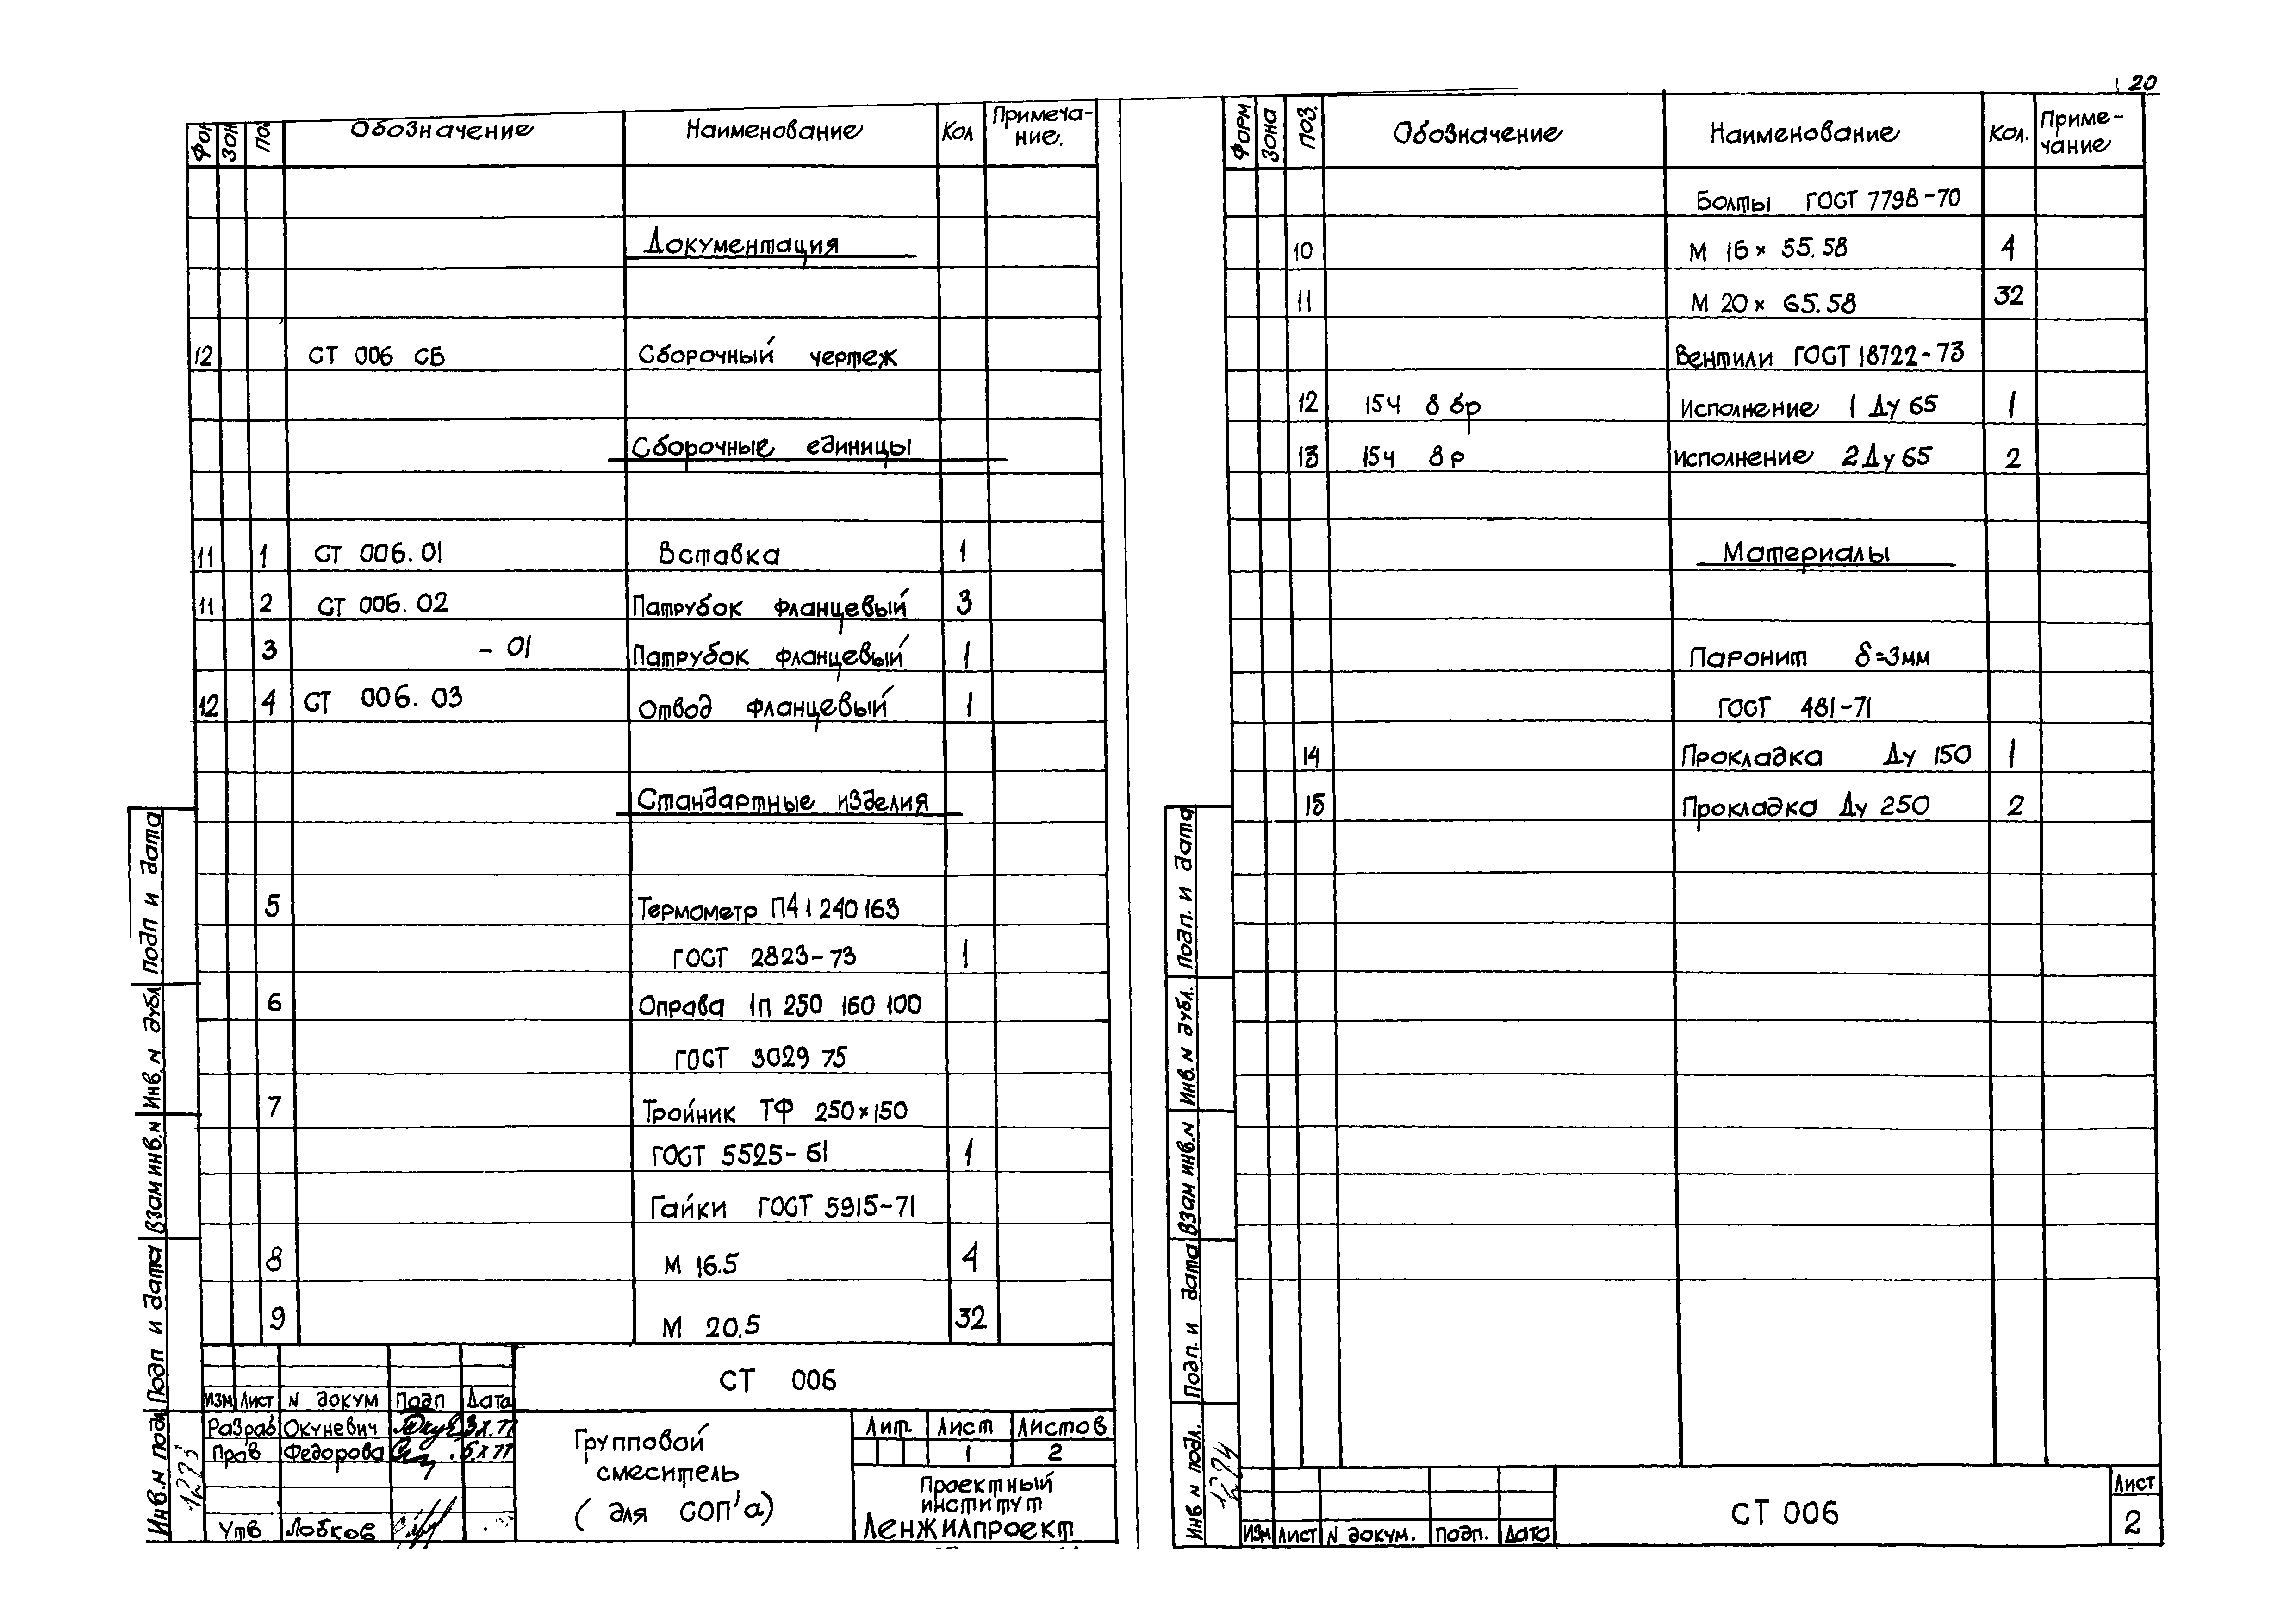 20
Фор Зон По Обозначение Наименование Кол Примеча-
ние.
Документация
12 СТ 006 СБ Сборочный чертеж
Сборочные единицы
11 1 СТ 006.01 Вставка 1
11 2 СТ 006.02 Патрубок фланцевый 3
3 - 01 Патрубок фланцевый 1
12 4 СТ 006.03 Отвод фланцевый 1
Стандартные изделия
5 Термометр П4 1 240 163
ГОСТ 2823-73 1
6 Оправа 1п 250 160 100
ГОСТ 3029 75
7 Тройник ТФ 250×150
ГОСТ 5525-61 1
Гайки ГОСТ 5915-71
8 М 16.5 4
9 М 20.5 32
Подп и дата
Инв. N дубл
Взам инв. N
Подп и дата
Инв. N подл
СТ 006
Изм Лист N докум Подп Дата
Разраб Окуневич 3.X.77
Пров Федорова 5.X 77
Утв Лобков
Групповой
смеситель
( для СОП'а)
Лит. Лист Листов
1 2
Проектный
институт
Ленжилпроект
Форм Зона Поз. Обозначение Наименование Кол. Приме-
чание
Болты ГОСТ 7798-70
10 М 16× 55.58 4
11 М 20× 65.58 32
Вентили ГОСТ 18722-73
12 15ч 8 бр Исполнение 1 Ду 65 1
13 15ч 8р исполнение 2 Ду 65 2
Материалы
Паронит δ=3мм
ГОСТ 481-71
14 Прокладка Ду 150 1
15 Прокладка Ду 250 2
Подп. и дата
Инв. N дубл.
Взам инв. N
Подп. и дата
Инв N подл.
1274
Изм Лист N докум. Подп. Дата
СТ 006
Лист
2